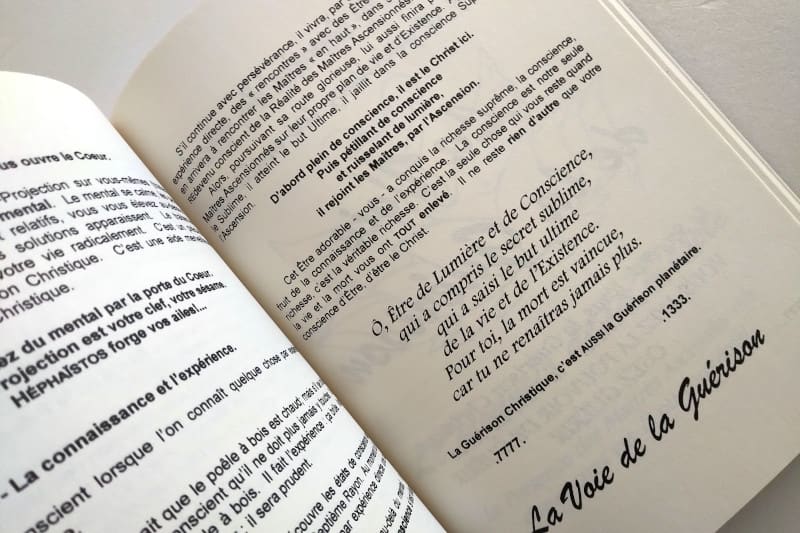 us ouvre le Coeur.
Projection sur vous-mêm
mental. Le mental se cal
relatifs, vous vous élevez d
s solutions apparaissent. La
votre vie radicalement. C'est un
on Christique. C'est une aide men
hristique.
ez du mental par la porte du Coeur.
rojection est votre clef, votre sésame.
HÉPHAÏSTOS forge vos ailes!...
- La connaissance et l'expérience.
nscient lorsque l'on connaît quelque chose par
ait que le poêle à bois est chaud, mais s'il
onscient qu'il ne doit plus jamais y
le à bois. Il fait l'expérience : ça
; il sera prudent.
couvre les états de
eptième Rayon. Au
par expérience
au-delà du
S'il continue avec persévérance, il vivra, par
expérience directe, des « rencontres » avec des Êtres
en arrivera à rencontrer les Maîtres « en haut », dans
redevenu conscient de la Réalité des Maîtres Ascensionnés
Alors, poursuivant sa route glorieuse, lui aussi finira
Maîtres Ascensionnés sur leur propre plan de vie et d'Existence.
le Sublime, il atteint le but Ultime, il jaillit dans la conscience
l'Ascension.
D'abord plein de conscience, il est le Christ ici.
Puis pétillant de conscience
et ruisselant de lumière,
il rejoint les Maîtres, par l'Ascension.
Cet Être adorable - vous - a conquis la richesse suprême, la conscience,
fruit de la connaissance et de l'expérience. La conscience est notre seule
richesse, c'est la véritable richesse. C'est la seule chose qui vous reste quand
la vie et la mort vous ont TOUT enlevé. Il ne reste rien d'autre que votre
conscience d'Être, d'être le Christ.
Ô, Être de Lumière et de Conscience,
qui a compris le secret sublime,
qui a saisi le but ultime
de la vie et de l'Existence.
Pour toi, la mort est vaincue,
car tu ne renaîtras jamais plus.
.1333.
La Guérison Christique, c'est AUSSI la Guérison planétaire.
.7777.
La Voie de la Guérison